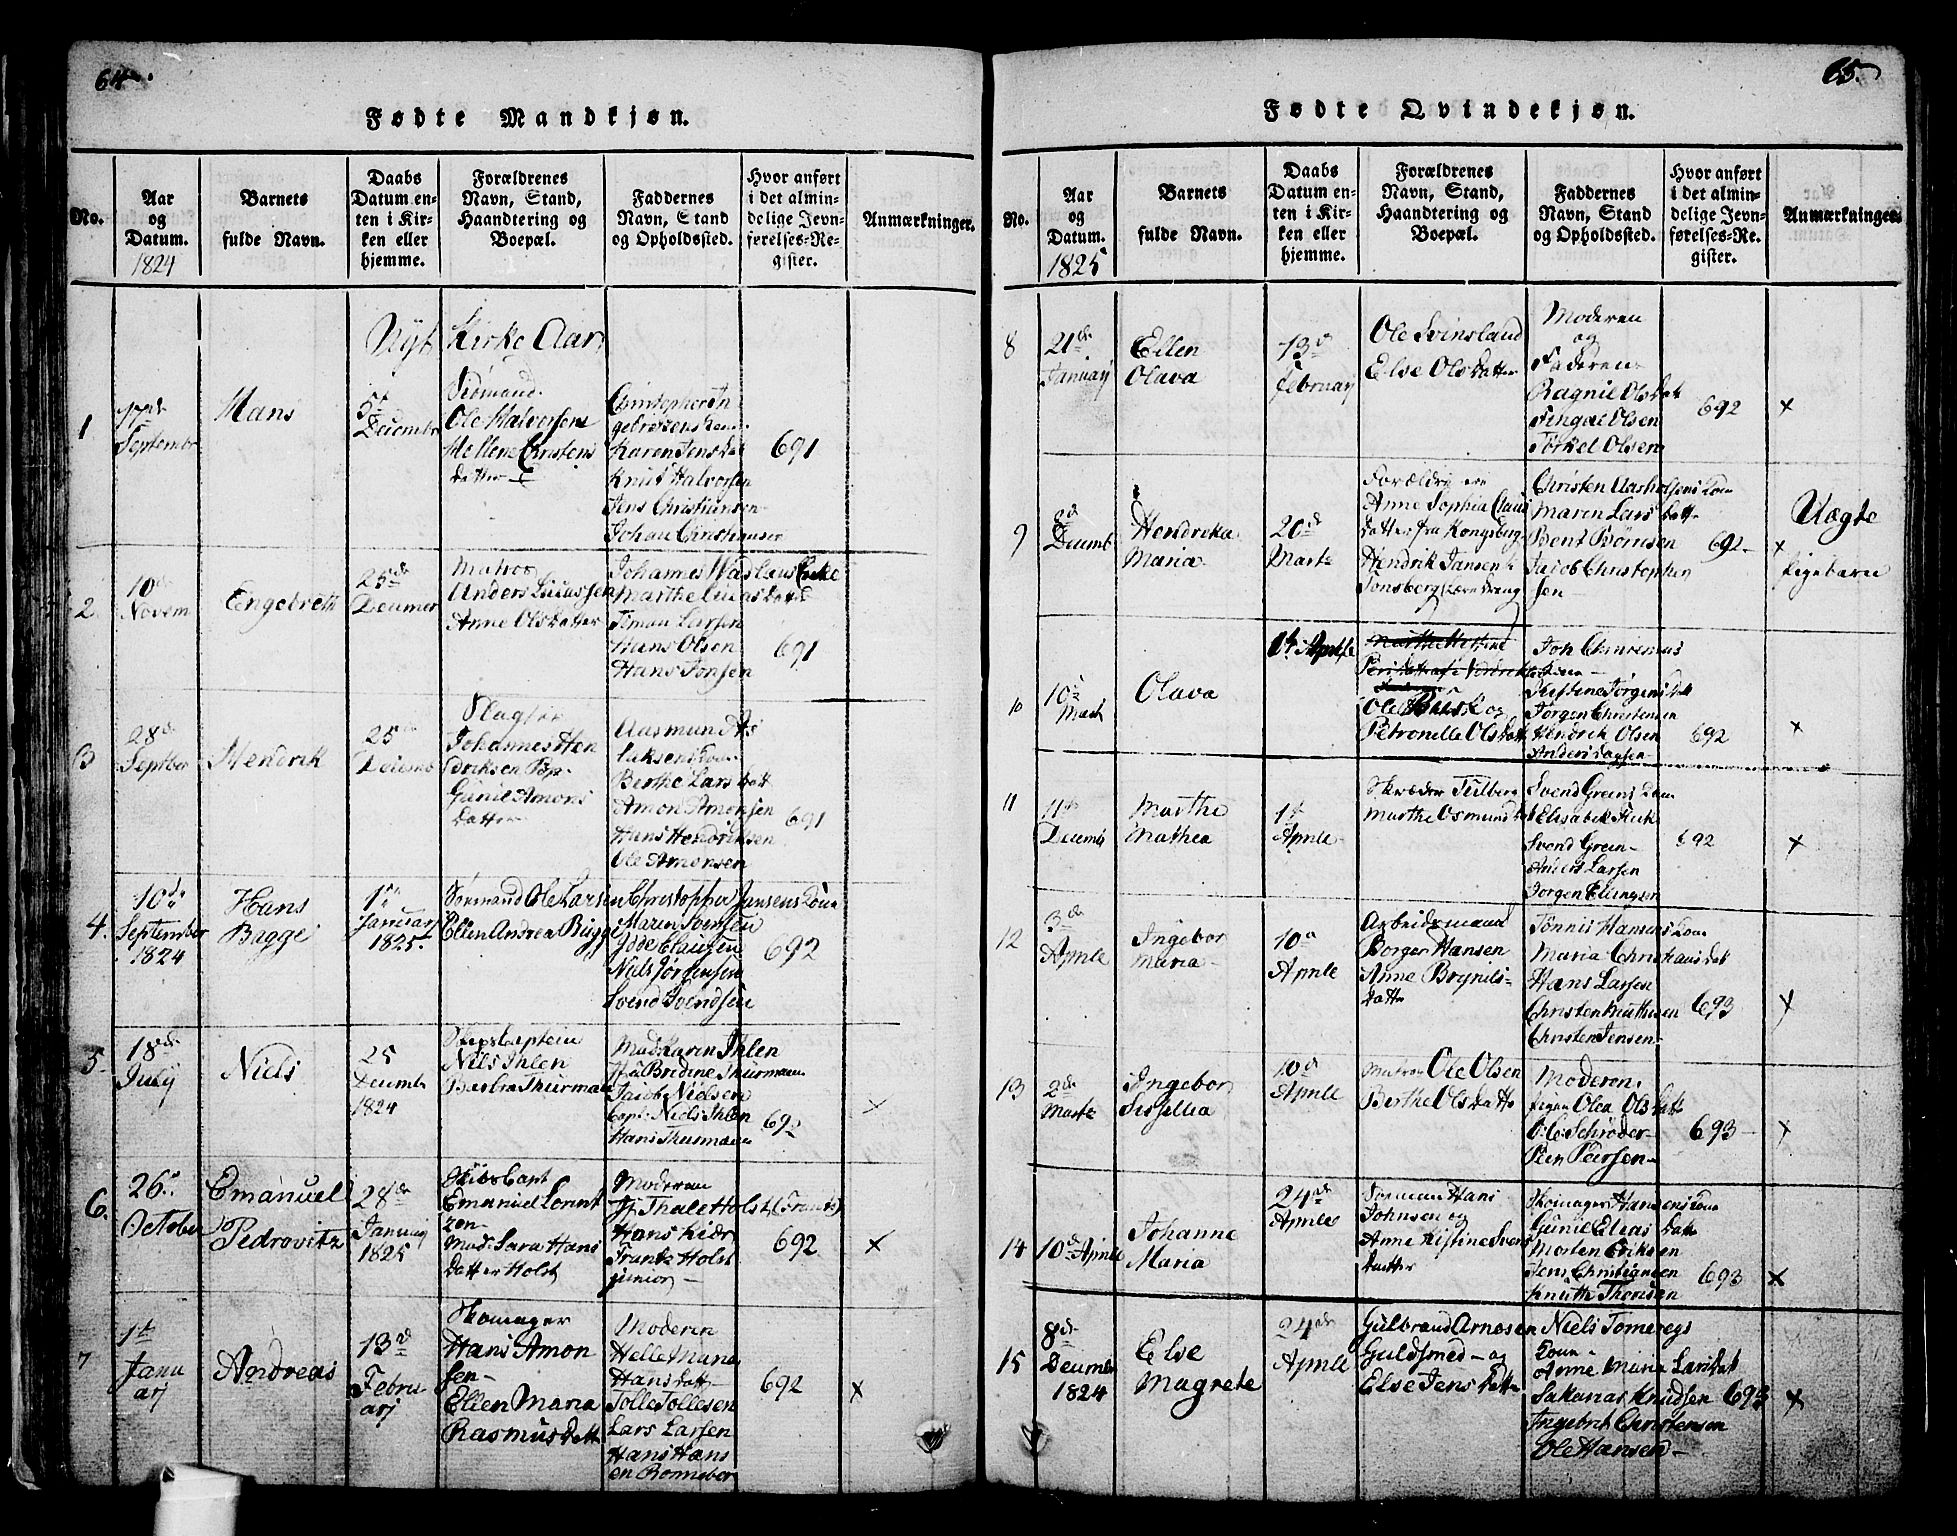 64
Fødte Mandkjøn.
No.
Aar
og
Datum.
1824
Barnets
fulde Navn.
Daabs
Datum en-
ten i Kir-
ken eller
hjemme.
Forældrenes
Navn, Stand,
Haandtering og
Boepæl.
Faddernes
Navn, Stand
og Opholdssted.
Hvor anført
i det almin-
delige Jevn-
førelses-Re-
gister.
Anmærkninger.
Nyt Kirke Aar
1
17de
September
Hans
Decembr
Sømand
Ole Halvorsen
Christens
datter
Karen Jensdat
Knut Halvorsen
Jens Christiansen
Johan Christiansen
691
2
10de
Novem
Engebreth
25de
Decemer
Matros
Anders Lucassen
Anne Olsdatter
Johannes
Marthe Lucasdatter
Simon Larsen
Hans Olsen
Hans Jonsen
691
3
28de
Septber
Hendrik
25
Decemb
Johannes Hen
driksen
Gunil Amons
datter
Aasmund As
laksens
Berthe Larsdatt
Amon Amonsen
Hans Hendriksen
Ole Amonsen
691
4.
10de
September
1824
Hans
Bagge
1de
Januarj
1825.
Sørmand Ole Larsen
Ellen Andrea Bugge
Christopher Jansens Kone
Maren Svensen
Clausen
Niels Jørgensen
Svend Svendsen
692
5
18de
July
Niels
25
Decembr
1824
Skipscaptein
Niels Ihlen
Thurmann
Mad. Karen Ihlen
Bredine Thurmann
Jacob Nielsen
Capt: Niels Ihlen
Hans Thurmann
692
×
6.
26de
October
Emanuel
Pedrovitz
28de
Januarj
1825
Skibs Capt
Emanuel Lorent
zen
Mad: Sara Hans
datter Holst
Moderen
Jf. Thale Holst (Frantz)
Hans
Frantz Holst
junior
692
×
7
1st
Janu
arj
Andreas
13de
Febru
arj
Skomager
Hans Amon
sen
Ellen Maria
Rasmusdatt
Moderen
Helle Maria
Hansdatt
Tolle Tollesen
Lars Larsen
Hans Hans
en
692
×
65.
Fødte Qvindekjøn.
No.
Aar
og
Datum.
1825
Barnets
fulde Navn.
Daabs
Datum en-
ten i Kir-
ken eller
hjemme.
Forældrenes
Navn, Stand,
Haandtering og
Boepæl.
Faddernes
Navn, Stand
og Opholdssted.
Hvor anført
i det almin-
delige Jevn-
førelses-Re-
gister.
Anmærkninger.
8
21de
Januarj
Ellen
Olava
13de
Februarj
Ole Svinsland
Else Olsdatter
Moderen
og
Faderen
Ragnil Olsdatt
Olsen
Torkel Olsen
692
×
9
8de
Decemb
Hendrika
Maria
20de
Marts
Forældre ere
Anne Sophia Claus
datter fra Kongsberg
Hendrik Jansen
Tonsberg
Christen Aasholsens Kone
Maren Larsdatter
Bent
Jacob Christopher
sen
692
×
Uægte
Pigebarn
10
10de
Marts
Olava
Aprile
Ole Busk og
Petronelle Olsdatt
Jørgen Christensen
Hendrik Olsen
Anders
692
×
11
11de
Decemb
Marthe
Mathea
1st
Aprile
Skræder
Marthe Osmundsd
Svend Greens Kone
Svend Green
Anders Larsen
Jørgen
692
×
12
3de
Aprile
Ingebor
Maria
10de
Aprile
Arbeidsmand
Borger Hansen
Anne Brynils-
datter
Tønnis Hansens Kone
Maria Christiansdat
Hans Larsen
Christen Mathisen
Christen Jensen
693
×
13
2de
Marts
Ingebor
Sissellia
10de
Aprile
Matros Ole Olsen
Berthe Olsdatter
Moderen
Pigen Olea Olsdatt
Ole Schrøder
693
×
14
10de Aprile
Johanne
Maria
24de
Aprile
Sørmann Hans
Johnsen og
Anne Kistine Svens
datter
Skomager Hansens Kone
Gunil Eliasdatt
Morten Eriksen
Jens Christiansen
Knuth Thomsen
693
×
15
8de
Decembr
1824
Else
Magrete
24de
Aprile
Gulbrand Arnesen
Guldsmed og
Else Jensdatter
Niels
Kone
Anne Maria Larsdat
Sakarias Knudsen
Ingebrit Christensen
Ole Hansen
693
×